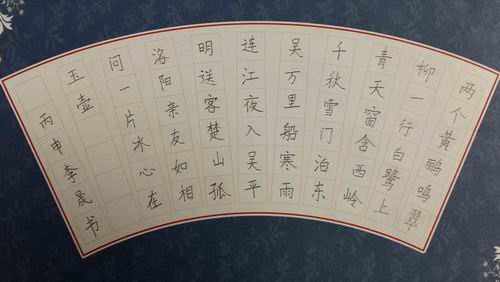 两个黄鹂鸣翠
柳一行白鹭上
青天窗含西岭
千秋雪门泊东
吴万里船寒雨
连江夜入吴平
明送客楚山孤
洛阳亲友如相
问一片冰心在
玉壶
丙申李晟书